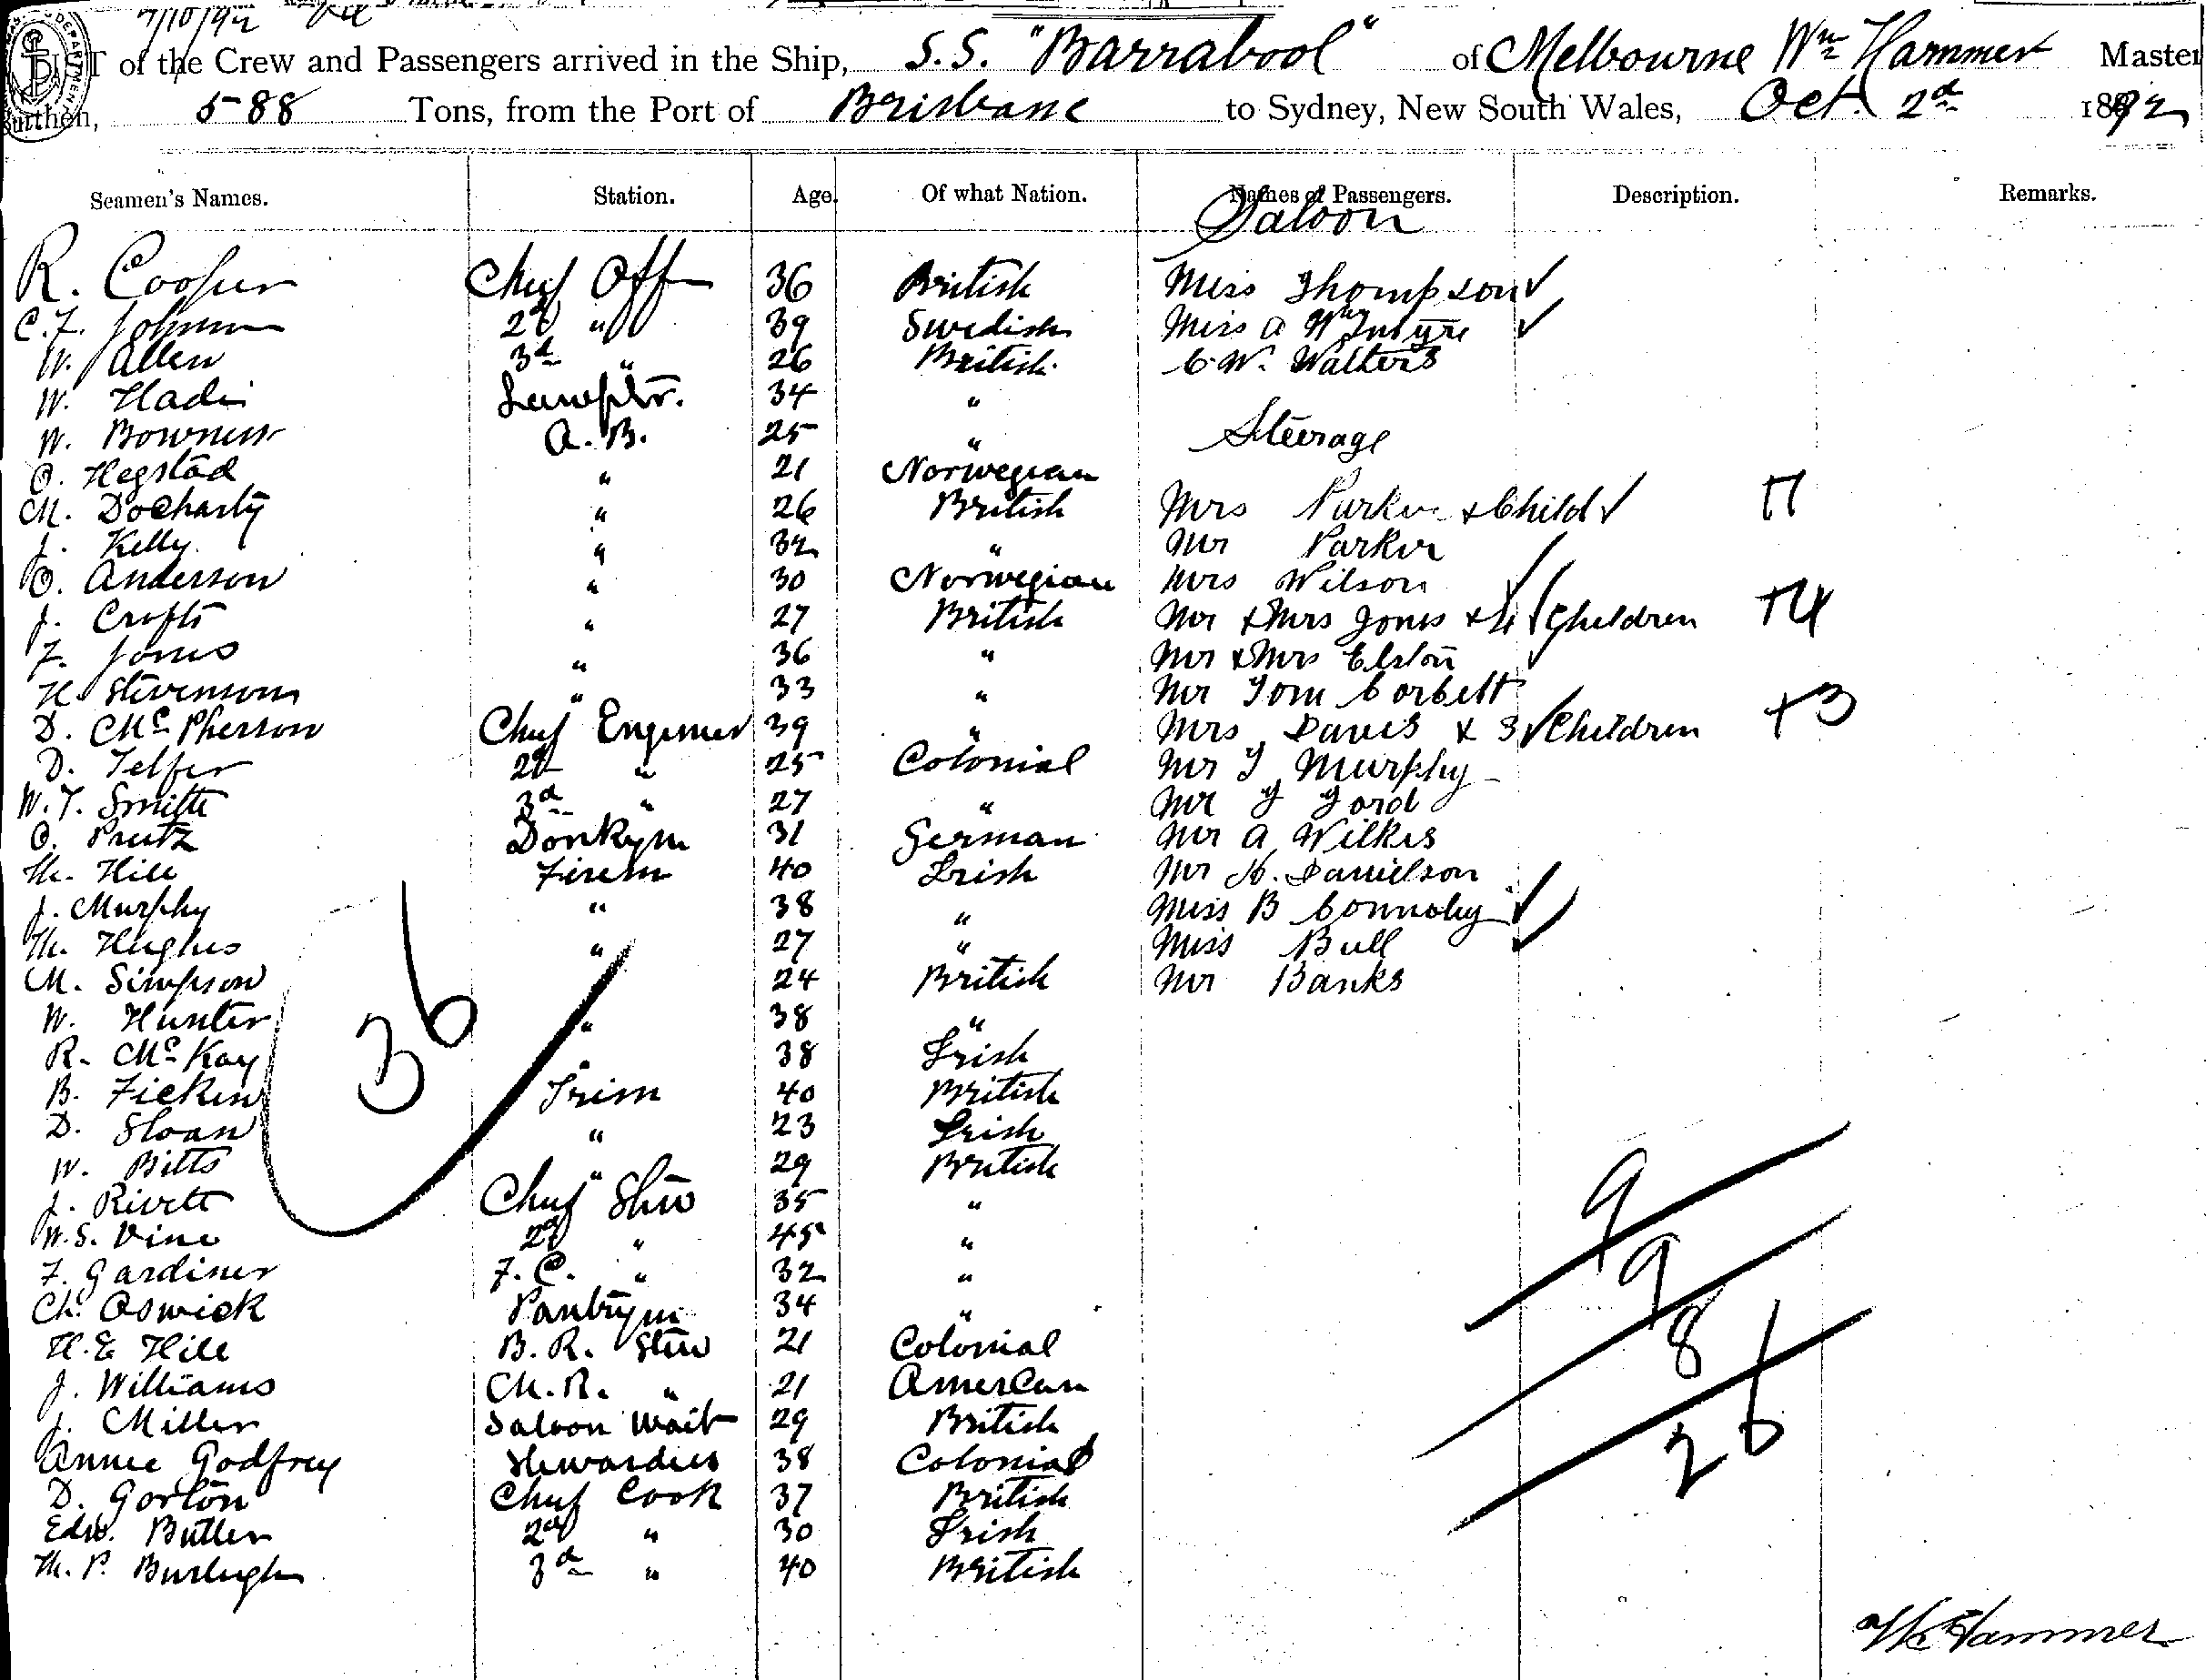 7/10/92
LIST of the Crew and Passengers arrived in the Ship, S.S. "Barrabool" of Melbourne Wm Hammer Master
Burthen, 588 Tons, from the Port of Brisbane to Sydney, New South Wales, Oct. 2d 1892
Seamen's Names. Station. Age. Of what Nation. Names of Passengers. Description. Remarks.
Saloon
R. Cooper Chief Off 36 British Miss Thompson
C.F. Johnson 2d " 39 Swedish Miss A McIntyre
W. Allen 3d " 26 British C. W. Walters
W. Hadi Lamptr. 34 "
W. Bowness A. B. 25 " Steerage
O. Hegstad " 21 Norwegian
M. Docharty " 26 British Mrs Parker & Child
J. Kelly " 32 " Mr Parker
O. Anderson " 30 Norwegian Mrs Wilson
J. Crofts " 27 British Mr & Mrs Jones & 4 Children +4
F. Jones " 36 " Mr & Mrs Elston
H. Stevenson " 33 " Mr Tom Corbett
D. McPherson Chief Engineer 39 " Mrs Davis & 3 Children +3
D. Telfer 2d " 25 Colonial Mr T Murphy
W. T. Smith 3d " 27 " Mr J Ford
O. Prutz Donkym 31 German Mr A Wilkes
Th. Hill Firem 40 Irish Mr H. Danielson
J. Murphy " 38 " Miss B Connoly
Th. Hughes " 27 " Miss Bull
M. Simpson 24 British Mr Banks
W. Hunter " 38 "
R. McKay " 38 Irish
B. Ficken Trim 40 British
D. Sloan " 23 Irish
W. Bitts " 29 British
J. Rivett Chief Stew 35 "
W.S. Vine 2d " 45 "
F. Gardiner F. C. " 32 "
Ch. Oswick Pantrym 34 "
H. E Hill B. R. Stew 21 Colonial
J. Williams M. R. " 21 American
J. Miller Saloon Wait 29 British
Annie Godfrey Stewardess 38 Colonial
D. Gorton Chief Cook 37 British
Edw. Butler 2d " 30 Irish
Th. P. Burleigh 3d " 40 British
36
9
9
8
26
Wm Hammer